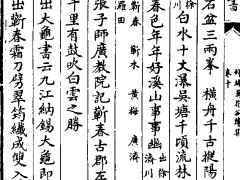 石盆三兩峯 橫舟千古樅陽
徐川 白水十丈瀑吳塘千頃流林
春色年年好溪山事事幽 出徐濟川
羅田 蘄水 黃梅 廣濟
張子師廣教院記蘄春古郡左
千里有鼓吹白雲之勝
出大龜書云九江納錫大龜即
出蘄春霜刀劈翠筠織成雙入